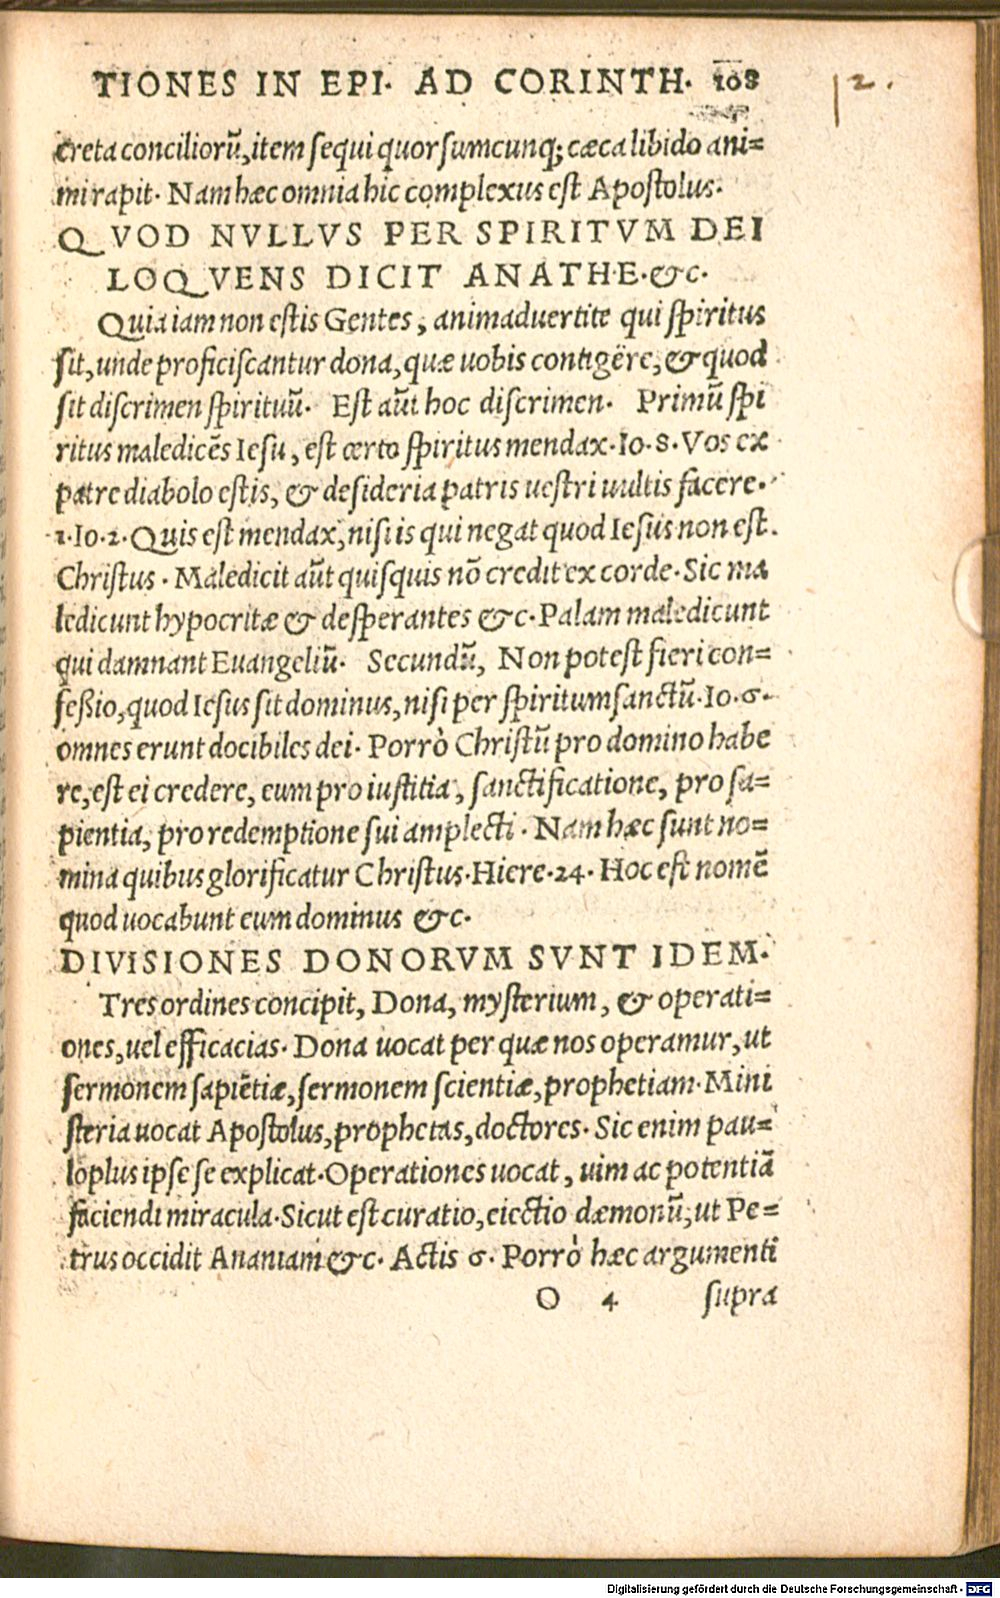 TIONES IN EPI· AD CORINTH· 108
12.
creta conciliorũ, item sequi quorsumcunq; cæca libido ani=
mi rapit· Nam hæc omnia hic complexus est Apostolus·
QVOD NVLLVS PER SPIRITVM DEI
LOQVENS DICIT ANATHE·&c·
Quia iam non estis Gentes, animaduertite qui spiritus
sit, unde proficiscantur dona, quæ uobis contigêre, & quod
sit discrimen spirituũ· Est aũt hoc discrimen· Primũ spi
ritus maledicẽs Iesu, est certo spiritus mendax·Io·8·Vos ex
patre diabolo estis, & desideria patris uestri uultis facere·
1·Io·2·Quis est mendax, nisi is qui negat quod Iesus non est.
Christus· Maledicit aũt quisquis nõ credit ex corde·Sic ma
ledicunt hypocritæ & desperantes &c·Palam maledicunt
qui damnant Euangeliũ· Secundũ, Non potest fieri con=
feßio, quod Iesus sit dominus, nisi per spiritum sanctũ·Io·6·
omnes erunt docibiles dei· Porrò Christũ pro domino habe
re, est ei credere, eum pro iustitia, sanctificatione, pro sa=
pientia, pro redemptione sui amplecti· Nam hæc sunt no=
mina quibus glorificatur Christus·Hiere·24·Hoc est nomẽ
quod uocabunt eum dominus &c·
DIVISIONES DONORVM SVNT IDEM·
Tres ordines concipit, Dona, mysterium, & operati=
ones, uel efficacias· Dona uocat per quæ nos operamur, ut
sermonem sapiẽtiæ, sermonem scientiæ, prophetiam·Mini
steria uocat Apostolus, prophetas, doctores· Sic enim pau=
loplus ipse se explicat·Operationes uocat, uim ac potentiã
faciendi miracula·Sicut est curatio, eiectio dæmonũ, ut Pe=
trus occidit Ananiam &c· Actis 6· Porrò hæc argumenti
O 4 supra
Digitalisierung gefördert durch die Deutsche Forschungsgemeinschaft - DFG